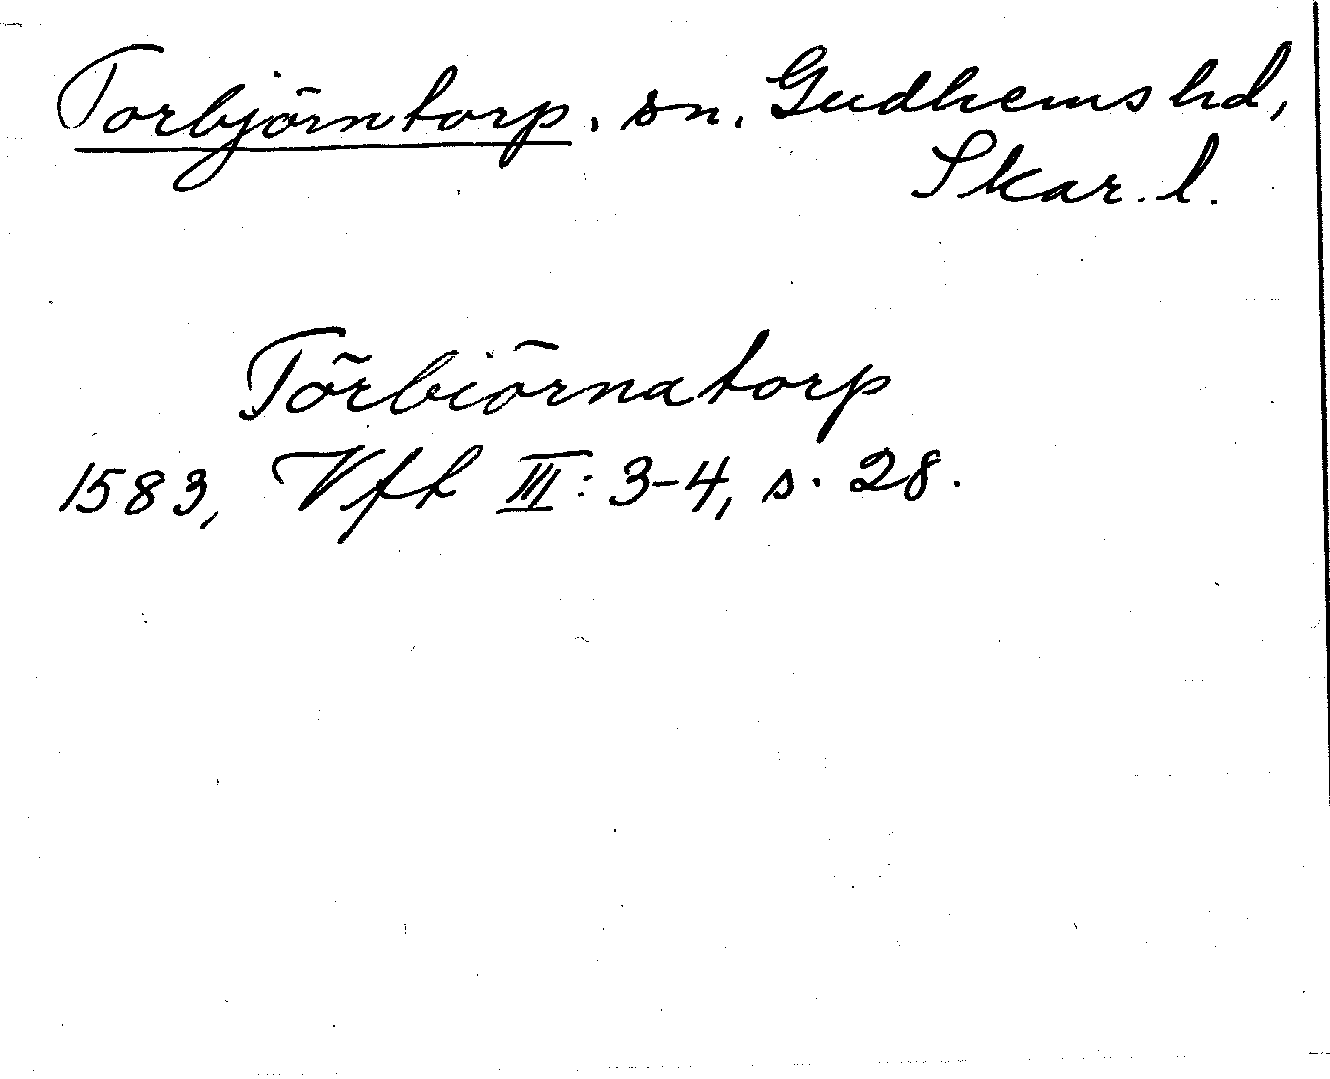 Torbjörntorp, sn. Gudhems hd,
Skar. l.
Törbiörnatorp
1583, Vft III: 3-4, s. 28.